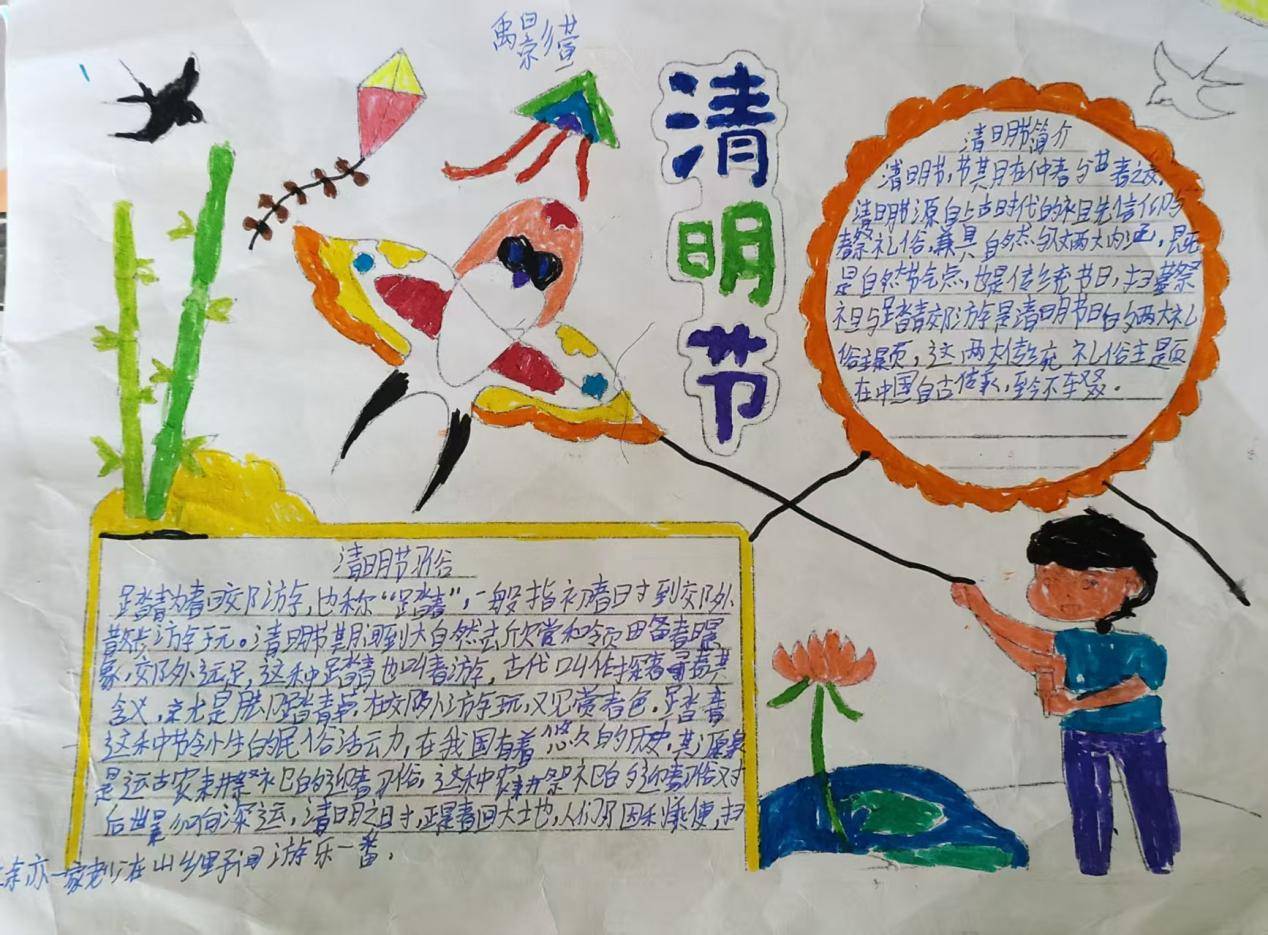 清明节
清明节简介
清明节，节其月在仲春与暮春之交。
清明节源自上古时代的祖先信仰与
春祭礼俗，兼具自然与人文两大内涵，既
是自然节气点，也是传统节日，扫墓祭
祖与踏青郊游是清明节日的两大礼
俗主题，这两大传统礼俗主题
在中国自古传承，至今不辍。
清明节习俗
踏青为春日郊游，也称“踏春”，一般指初春日寸到郊外
散步游玩。清明节期间到大自然去欣赏和领
象，郊外远足，这种踏青也叫春游，古代叫作探春寻春其
含义，就是脚踏青草，在郊外游玩，又见赏春色，踏春
这种节令小生的民俗活动，在我国有着悠久的历史，其源泉
是远古农耕祭祀的迎春习俗，这种农耕祭祀的迎春习俗对
后世影响深远，清明之日寸，正是春回大地，人们乃因利乘便，扫
亦一家老少在山乡里予间游乐一番。